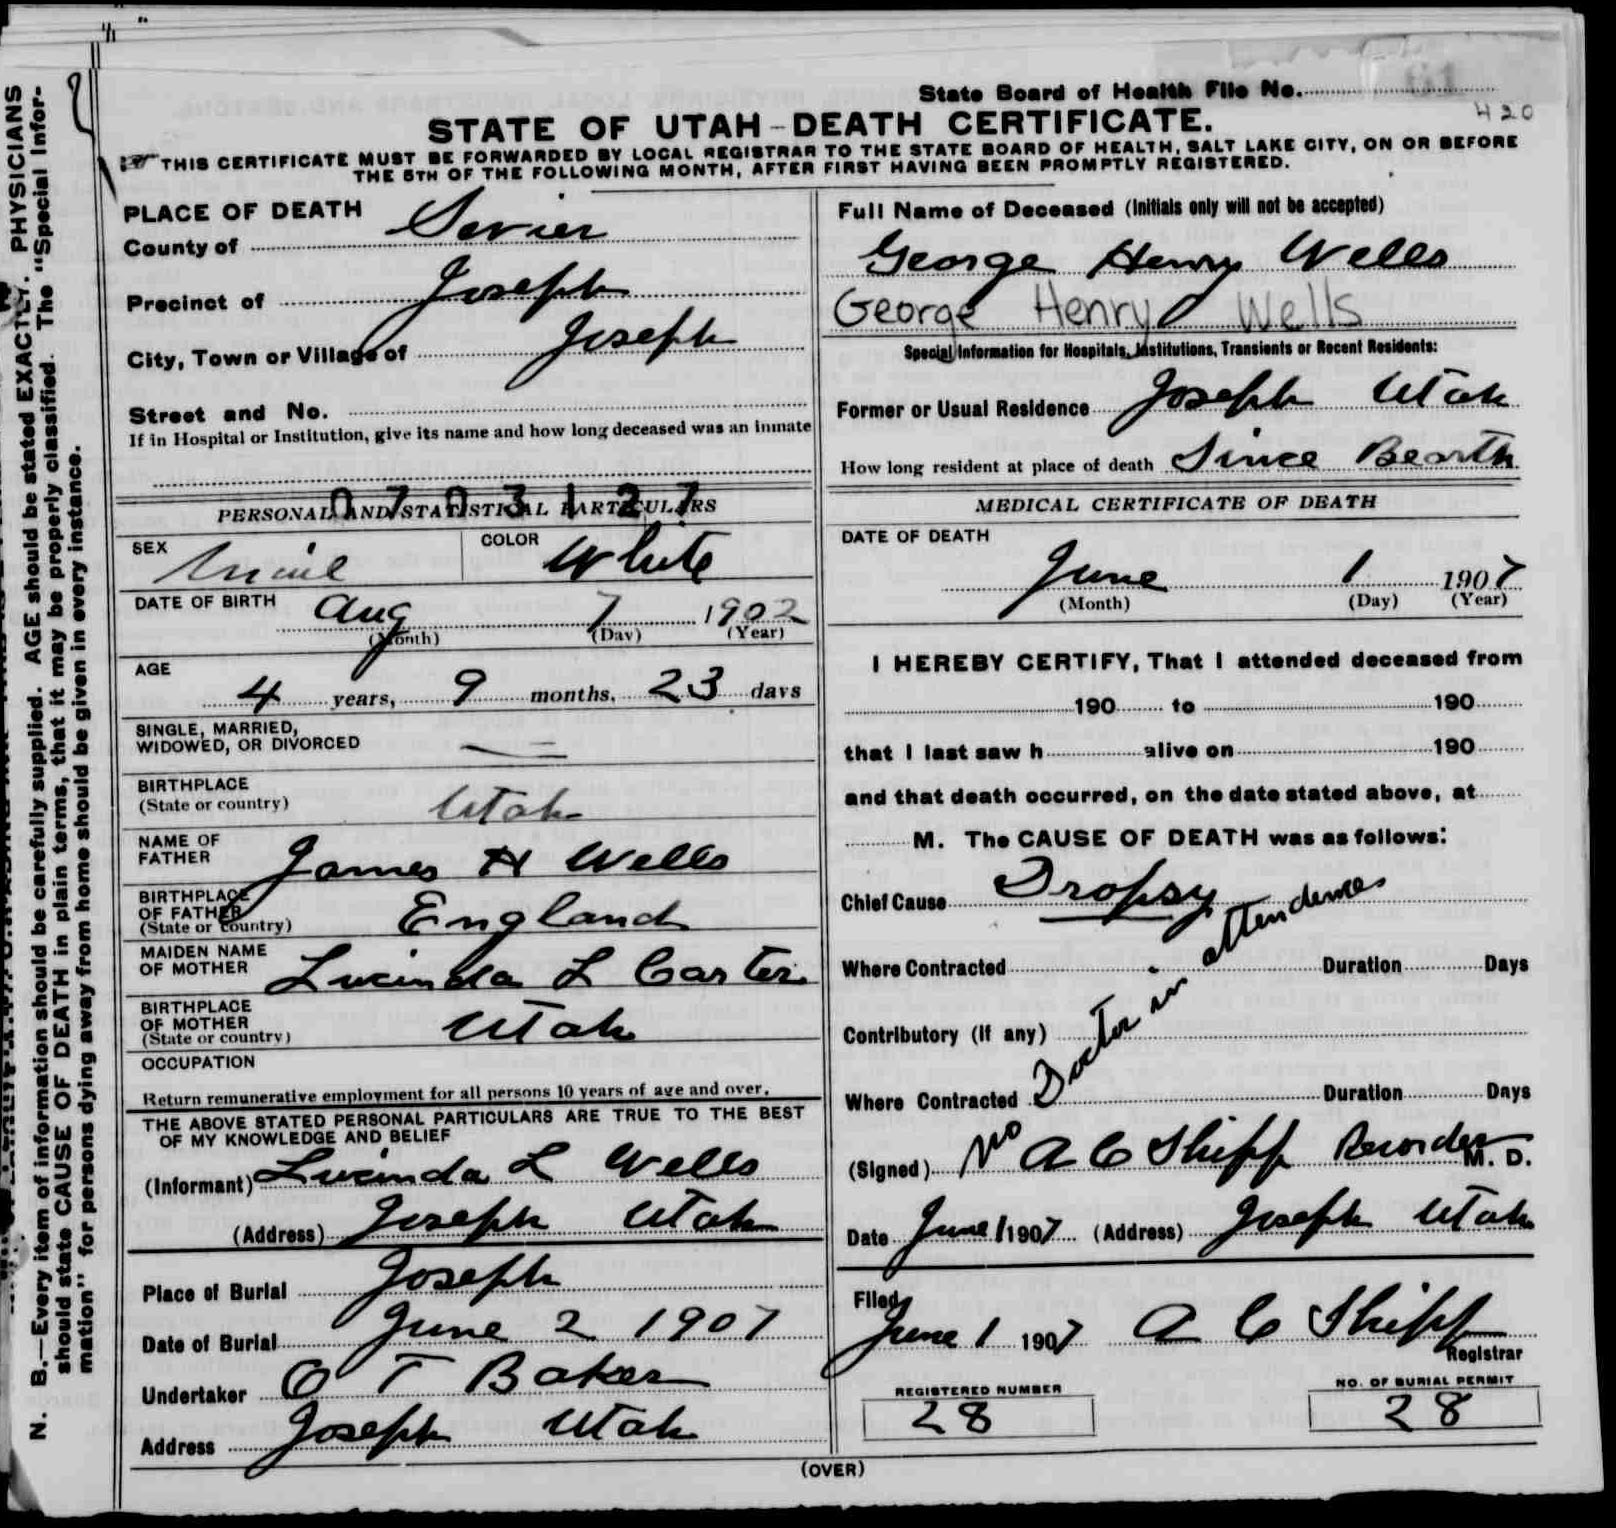 N. B.—Every item of information should be carefully supplied. AGE should be stated EXACTLY. PHYSICIANS
should state CAUSE OF DEATH in plain terms, that it may be properly classified. The "Special Infor-
mation" for persons dying away from home should be given in every instance.
State Board of Health File No.
420
STATE OF UTAH-DEATH CERTIFICATE.
THIS CERTIFICATE MUST BE FORWARDED BY LOCAL REGISTRAR TO THE STATE BOARD OF HEALTH, SALT LAKE CITY, ON OR BEFORE
THE 5TH OF THE FOLLOWING MONTH, AFTER FIRST HAVING BEEN PROMPTLY REGISTERED.
PLACE OF DEATH
County of Sevier
Precinct of Joseph
City, Town or Village of Joseph
Street and No.
If in Hospital or Institution, give its name and how long deceased was an inmate
0703127
PERSONAL AND STATISTICAL PARTICULARS
SEX Male COLOR White
DATE OF BIRTH Aug 7 1902
(Month) (Day) (Year)
AGE
4 years, 9 months, 23 days
SINGLE, MARRIED,
WIDOWED, OR DIVORCED
BIRTHPLACE
(State or country) Utah
NAME OF
FATHER James H Wells
BIRTHPLACE
OF FATHER
(State or country) England
MAIDEN NAME
OF MOTHER Lucinda L Carter
BIRTHPLACE
OF MOTHER
(State or country) Utah
OCCUPATION
Return remunerative employment for all persons 10 years of age and over.
THE ABOVE STATED PERSONAL PARTICULARS ARE TRUE TO THE BEST
OF MY KNOWLEDGE AND BELIEF
(Informant) Lucinda L Wells
(Address) Joseph Utah
Place of Burial Joseph
Date of Burial June 2 1907
Undertaker O T Baker
Address Joseph Utah
Full Name of Deceased (Initials only will not be accepted)
George Henry Wells
George Henry Wells
Special Information for Hospitals, Institutions, Transients or Recent Residents:
Former or Usual Residence Joseph Utah
How long resident at place of death Since Bearth
MEDICAL CERTIFICATE OF DEATH
DATE OF DEATH
June 1 1907
(Month) (Day) (Year)
I HEREBY CERTIFY, That I attended deceased from
190 to 190
that I last saw h alive on 190
and that death occurred, on the date stated above, at
M. The CAUSE OF DEATH was as follows:
Chief Cause Dropsy
Where Contracted Duration Days
Contributory (if any)
Where Contracted Duration Days
No Doctor in attendence
(Signed) A C Shipp Recorder M. D.
Date June 1 1907 (Address) Joseph Utah
Filed
June 1 1907 A C Shipp
Registrar
REGISTERED NUMBER
28
NO. OF BURIAL PERMIT
28
(OVER)